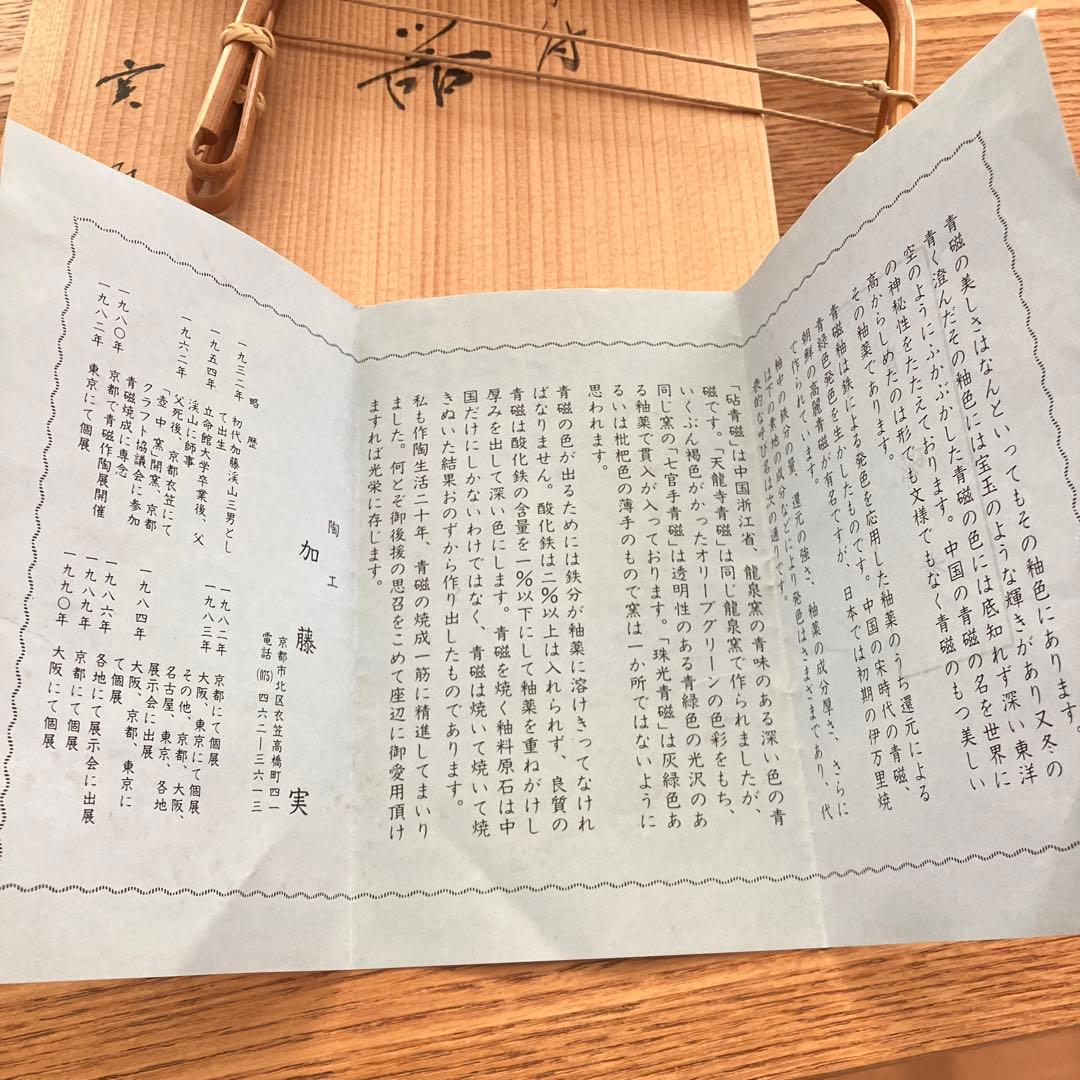 器
肴
実
青磁の美しさはなんといってもその釉色にあります。
青く澄んだその釉色には宝玉のような輝きがあり又冬の
空のようにふかぶかした青磁の色には底知れず深い東洋
の神秘性をたたえております。中国の青磁の名を世界に
高からしめたのは形でも文様でもなく青磁のもつ美しい
その釉薬であります。
青磁釉は鉄による発色を応用した釉薬のうち還元による
青緑色発色を生かしたものです。中国の宋時代の青磁、
朝鮮の高麗青磁が有名ですが、日本では初期の伊万里焼
で作られています。
釉中の鉄分の量、還元の強さ、釉薬の成分厚さ、さらに
は下の素地の成分などにより発色はさまざまであり、代
表的な呼び名は次の通りです。
「砧青磁」は中国浙江省、龍泉窯の青味のある深い色の青
磁です。「天龍寺青磁」は同じ龍泉窯で作られましたが、
いくぶん褐色がかったオリーブグリーンの色彩をもち、
同じ窯の「七官手青磁」は透明性のある青緑色の光沢のあ
る釉薬で貫入が入っております。「珠光青磁」は灰緑色あ
るいは枇杷色の薄手のもので窯は一か所ではないように
思われます。
青磁の色が出るためには鉄分が釉薬に溶けきってなけれ
ばなりません。酸化鉄は二％以上は入れられず、良質の
青磁は酸化鉄の含量を一％以下にして釉薬を重ねがけし
厚みを出して深い色にします。青磁を焼く釉料原石は中
国だけにしかないわけではなく、青磁は焼いて焼いて焼
きぬいた結果おのずから作り出したものであります。
私も作陶生活二十年、青磁の焼成一筋に精進してまいり
ました。何とぞ御後援の思召をこめて座辺に御愛用頂け
ますれば光栄に存じます。
陶工
加藤実
京都市北区衣笠高橋町四一
電話(075)四六二―三六一三
略歴
一九三二年 初代加藤渓山三男とし
て出生
一九五四年 立命館大学卒業後、父
渓山に師事
一九六二年 父死後、京都衣笠にて
「壺中窯」開窯、京都
クラフト協議会に参加
青磁焼成に専念
一九八〇年 京都で青磁作陶展開催
一九八二年 東京にて個展
一九八二年 京都にて個展
一九八三年 大阪、東京にて個展
その他、京都、大阪、
名古屋、東京、各地
展示会に出展
一九八四年 大阪、京都、東京に
て個展
一九八六年 各地にて展示会に出展
一九八九年 京都にて個展
一九九〇年 大阪にて個展